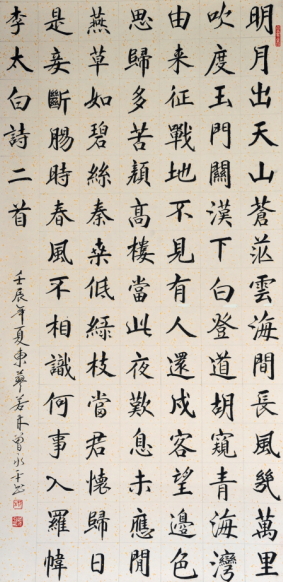 明月出天山蒼茫雲海間長風幾萬里
吹度玉門關漢下白登道胡窺青海灣
由来征戰地不見有人還戍客望邊色
思歸多苦顏髙樓當此夜歎息未應閒
燕草如碧絲秦桒低緑枝當君懷歸日
是妾斷腸時春風不相識何事入羅幃
李太白詩二首
壬辰年夏東華若木曾